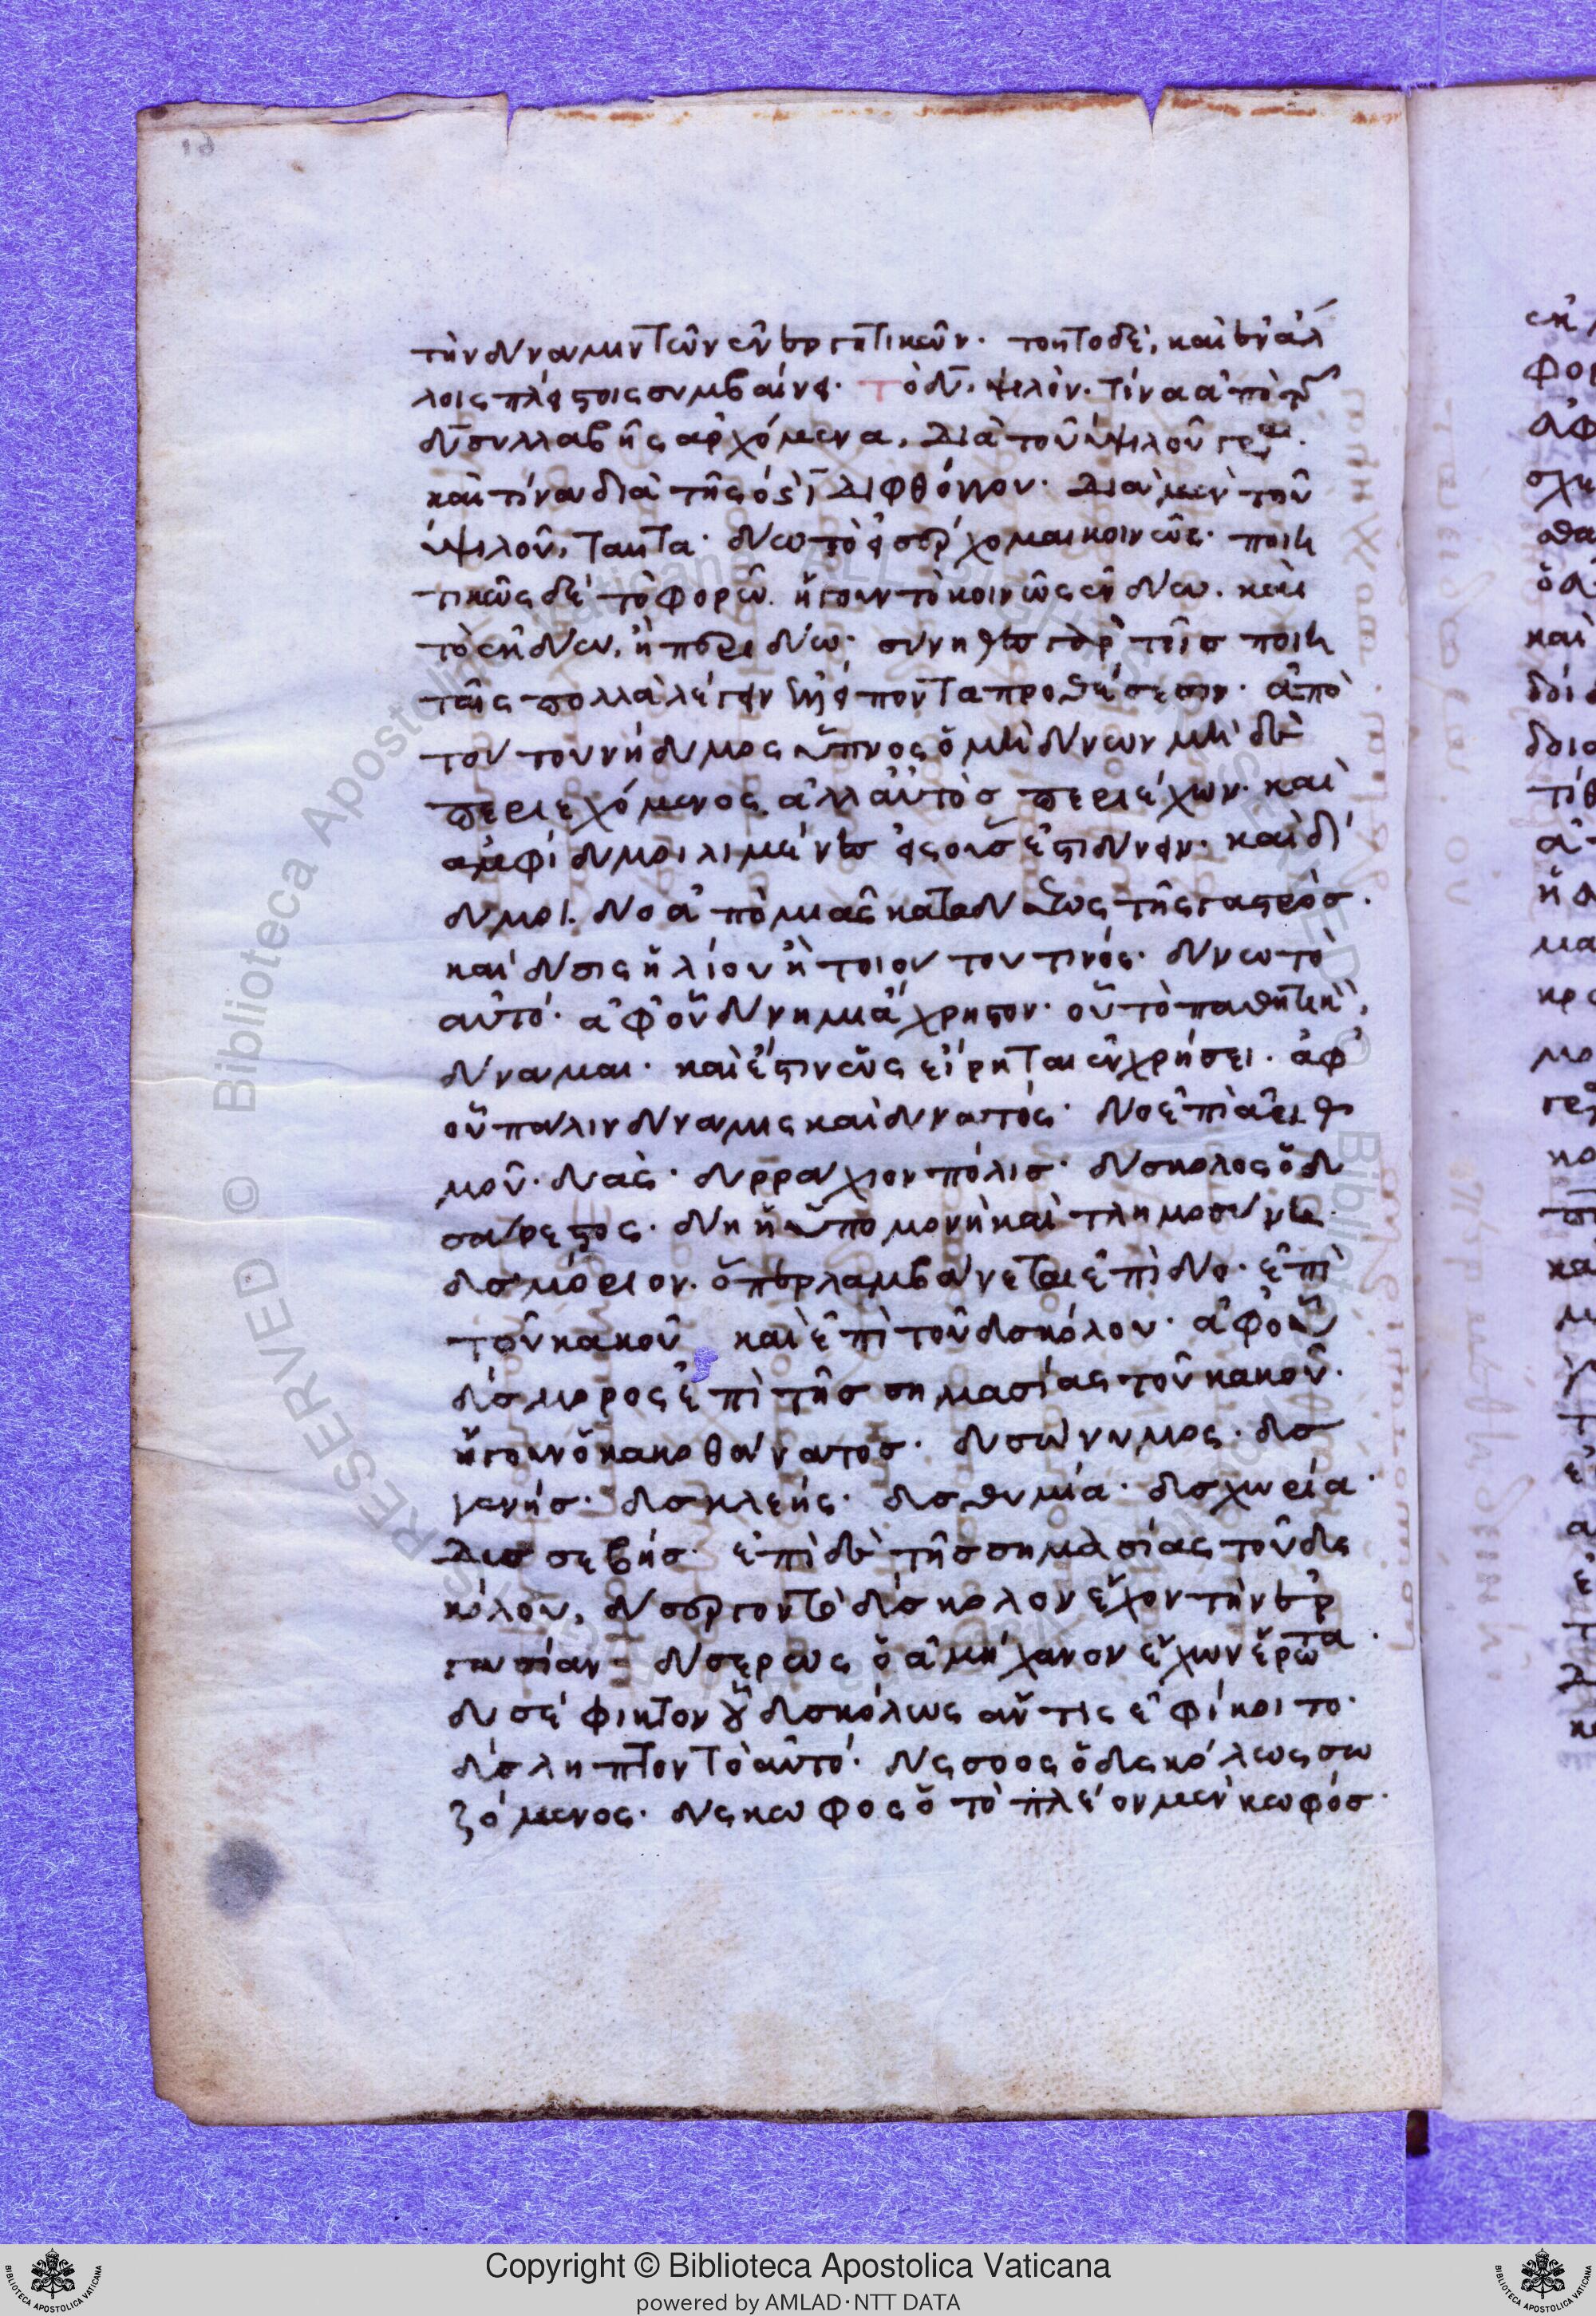 τὴν δύναμιν τῶν ἐνεργητικῶν· τοῦτο δὲ, καὶ ἐν ἄλ
λοις πλείστοις συμβαίνει· τὸ δυ, ψιλόν. τίνα ἀπὸ τῆς
δυ συλλαβῆς ἀρχόμενα, διὰ τοῦ υ ψιλοῦ γρ
καὶ τίνα διὰ τῆς ο ϛ ι διφθόγγου· διὰ μὲν τοῦ
υ ψιλοῦ, ταῦτα· δύω τὸ εἰσέρχομαι κοινῶς· ποιη
τικῶς δὲ τὸ φορῶ. ἤγουν τὸ κοινῶς ἐνδύω. καὶ
τὸ ἐκδύω, ἢ περιδύω· σύνηθες γὰρ τοῖς ποιη
ταῖς πολλὰ λέγειν λείποντα προθέσεσιν· ἀπὸ
τούτου νήδυμος ὕπνος ὁ μὴ δύνων μὴ δὲ
περιεχόμενος ἀλλ' αὐτὸς περιέχων· καὶ
ἀμφίδυμοι λιμένες εἰς οὓς ἔστι δύνειν· καὶ δί
δυμοι. δύο ἀπὸ μιᾶς καταδύσεως τῆς γαστρός.
καὶ δύσις ἡλίου ἢ τοιούτου τινός· δύνω τὸ
αὐτό· ἀφ' οὗ δύνημι ἄχρηστον· οὗ τὸ παθητικὸν,
δύναμαι· καὶ ἔστιν ὡς εἴρηται ἐν χρήσει· ἀφ'
οὗ πάλιν δύναμις καὶ δυνατός· δύο ἐπὶ ἀριθ
μοῦ· δυάς· δυρράχιον πόλις· δύσκολος ὁ δυ
σάρεστος· δύη ἡ ὑπομονὴ καὶ τλημοσύνη·
δυς μόριον. ὅπερ λαμβάνεται ἐπὶ δύο· ἐπὶ
τοῦ κακοῦ καὶ ἐπὶ τοῦ δυσκόλου· ἀφ' οὗ
δύσμορος ἐπὶ τῆς σημασίας τοῦ κακοῦ.
ἤγουν ὁ κακοθάνατος· δυσώνυμος· δυσ
γενής· δυσκλεής· δυσθυμία· δυσχωρία·
δυσσεβής· ἐπὶ δὲ τῆς σημασίας τοῦ δυς
κόλου, δύσεργον τὸ δύσκολον ἔχον τὴν ἐρ
γασίαν· δύσερως ὁ ἀμήχανον ἔχων ἔρωτα·
δυσέφικτον οὗ δυσκόλως ἄν τις ἐφίκοιτο·
δύσληπτον τὸ αὐτό· δύςσοος ὁ δυςκόλως σω
ζόμενος· δύςκωφος ὁ τὸ πλέον μὲν κωφός·
Copyright © Biblioteca Apostolica Vaticana
powered by AMLAD·NTT DATA